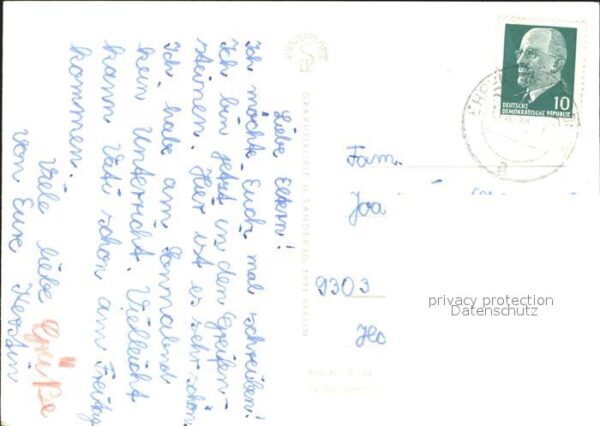 Liebe Eltern!
Ich möchte Euch mal schreiben!
Ich bin jetzt in den Greifen-
steinen. Hier ist es sehr schön.
Ich habe am Sonnabend
kein Unterricht. Vielleicht
kann Vati schon am Freitag
kommen.
Viele liebe Grüße
von Eure Kerstin
GRAPHOKOPIE H. SANDER KG, 1071 BERLIN
10
DEUTSCHE
DEMOKRATISCHE REPUBLIK
Fam.
Joa
9303
privacy protection
Datenschutz